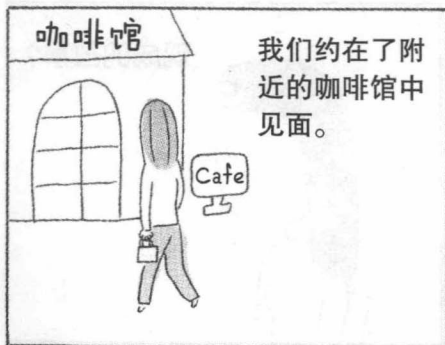 咖啡馆
我们约在了附
近的咖啡馆中
见面。
Cafe